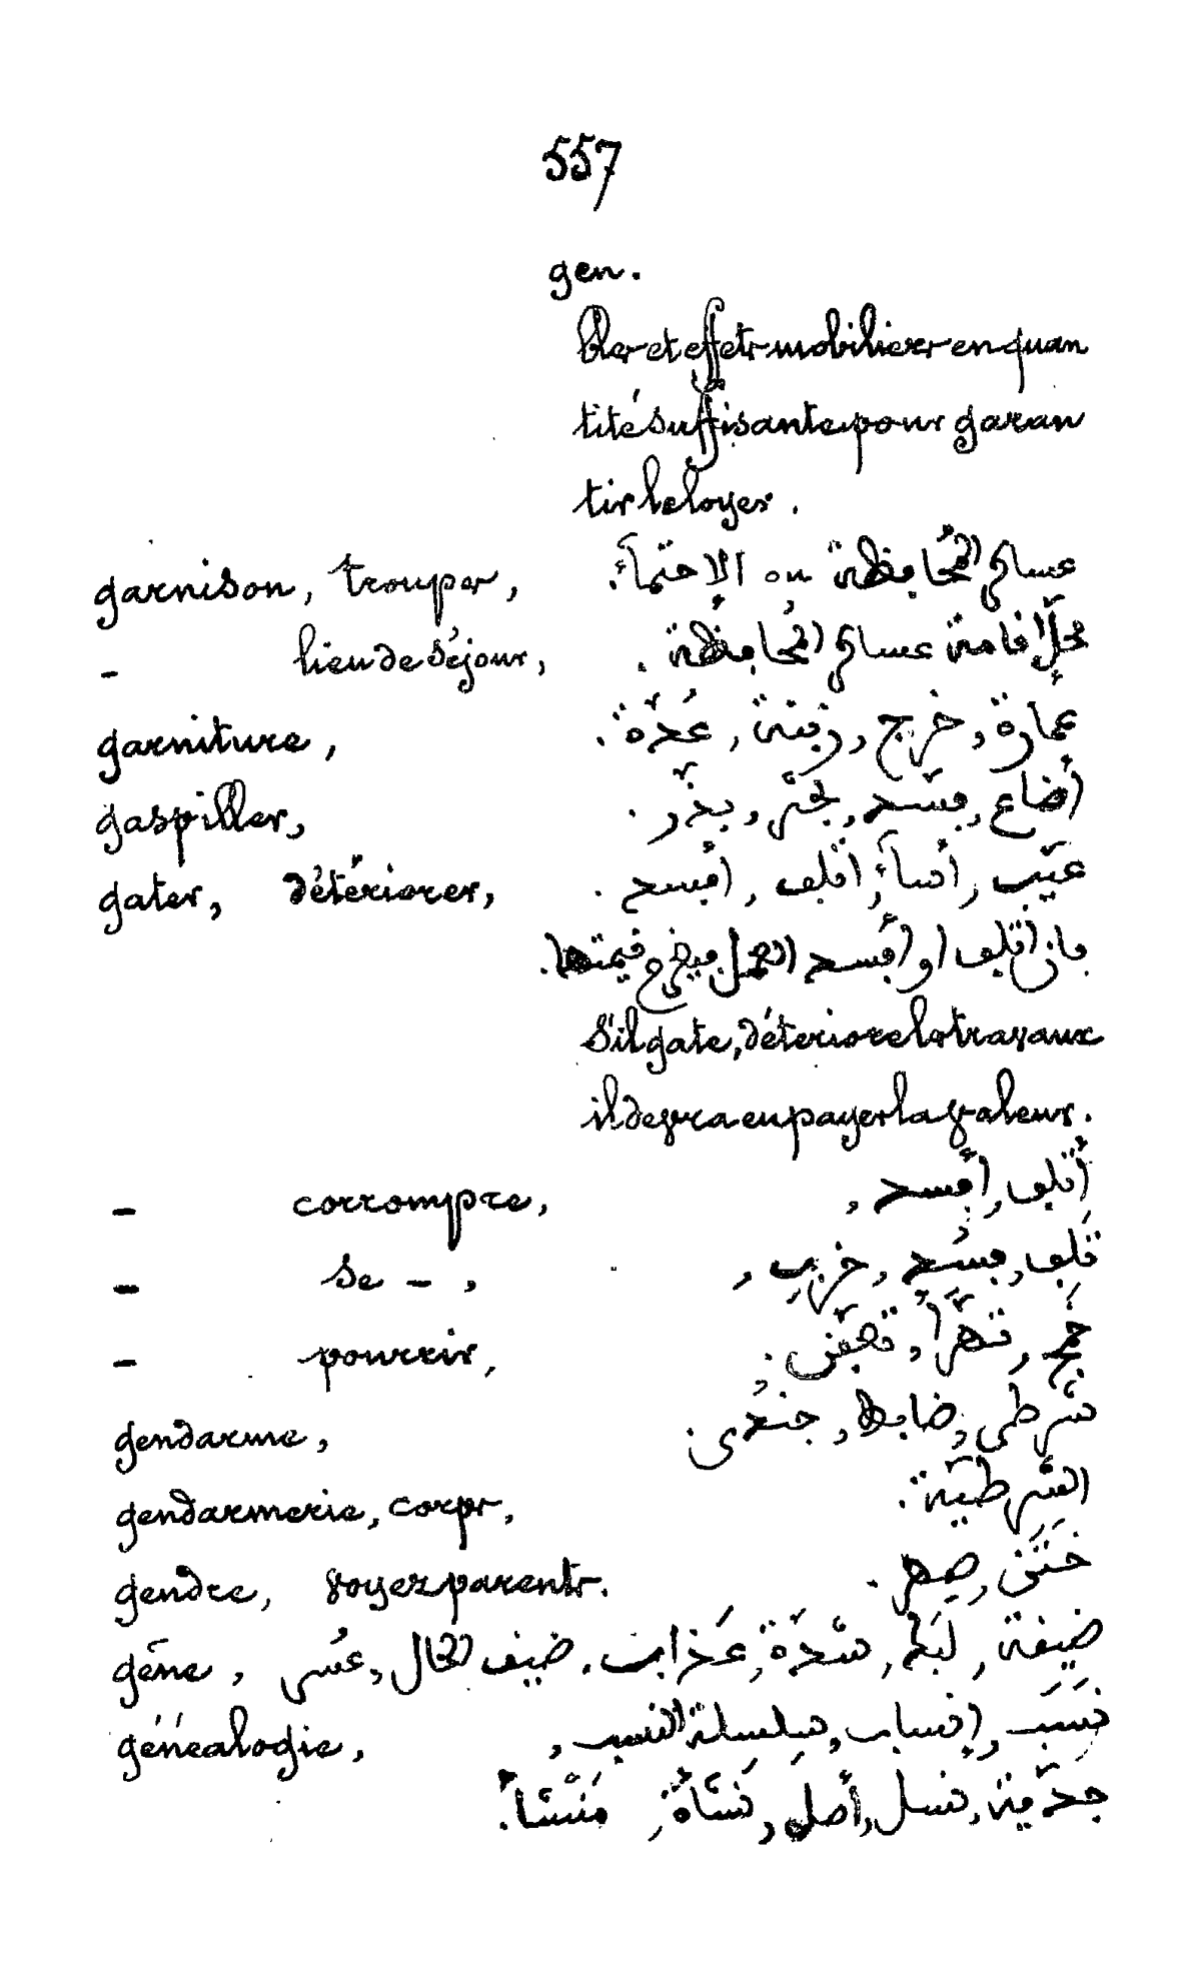 557
gen.
Des et effets mobiliers en quan
tité suffisante pour garan
tir le loyer.
garnison, troupes, عساكر المُحافظة ou الاحتمآء.
– lieu de séjour, محلّ اقامة عساكر المُحافظة.
garniture, عمارة, خرج, زينة, عُدّة.
gaspiller, أضاع, فسّد, بذّر.
gater, détériorer, عيّب, أسآء, اتلف, أفسد.
فان اتلف او أفسد العمل قيمتها.
S'il gate, détériore les travaux
il devra en payer la valeur.
– corrompre, أتلف, أفسد,
– se –, تَلِف, فسُد, خرِب,
– pourrir, خَمِج, تهرّأ, تعفّن.
gendarme, شرطي, ضابط, جندي.
gendarmerie, corps, الشرطيّة.
gendre, voyez parents. خَتَن, صهر.
gêne, ضيقة, شدّة, عَذاب. ضيق الحال, عُسر
généalogie, نَسَب, إنساب, سلسلة النسب,
نسل, أصل, نَشأة, مَنْشأ.